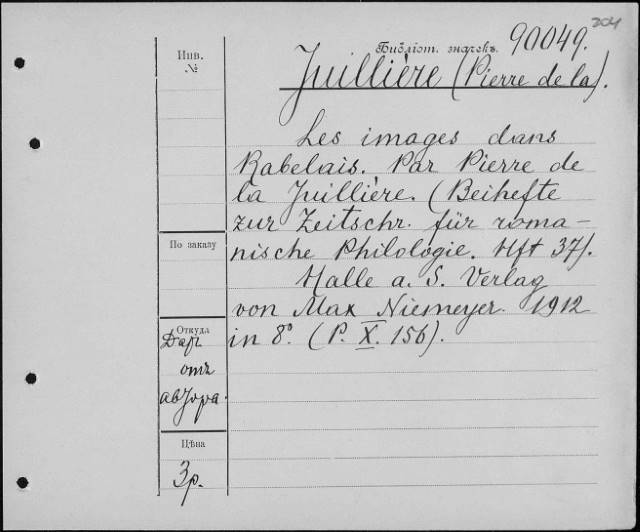 204
Библіот. значекъ. 90049.
Juillière (Pierre de la).
Инв.
№
Les images dans
Rabelais. Par Pierre de
la Juillière. (Beihefte
zur Zeitschr. für roma-
nische Philologie. Hft 37).
Halle a. S. Verlag
von Max Niemeyer. 1912
in 8°. (P. X. 156).
По заказу
Откуда
Даръ
отъ
автора.
Цѣна
3р.